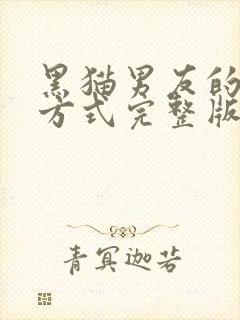 黑猫男友的
方式完整版
青冥迦若